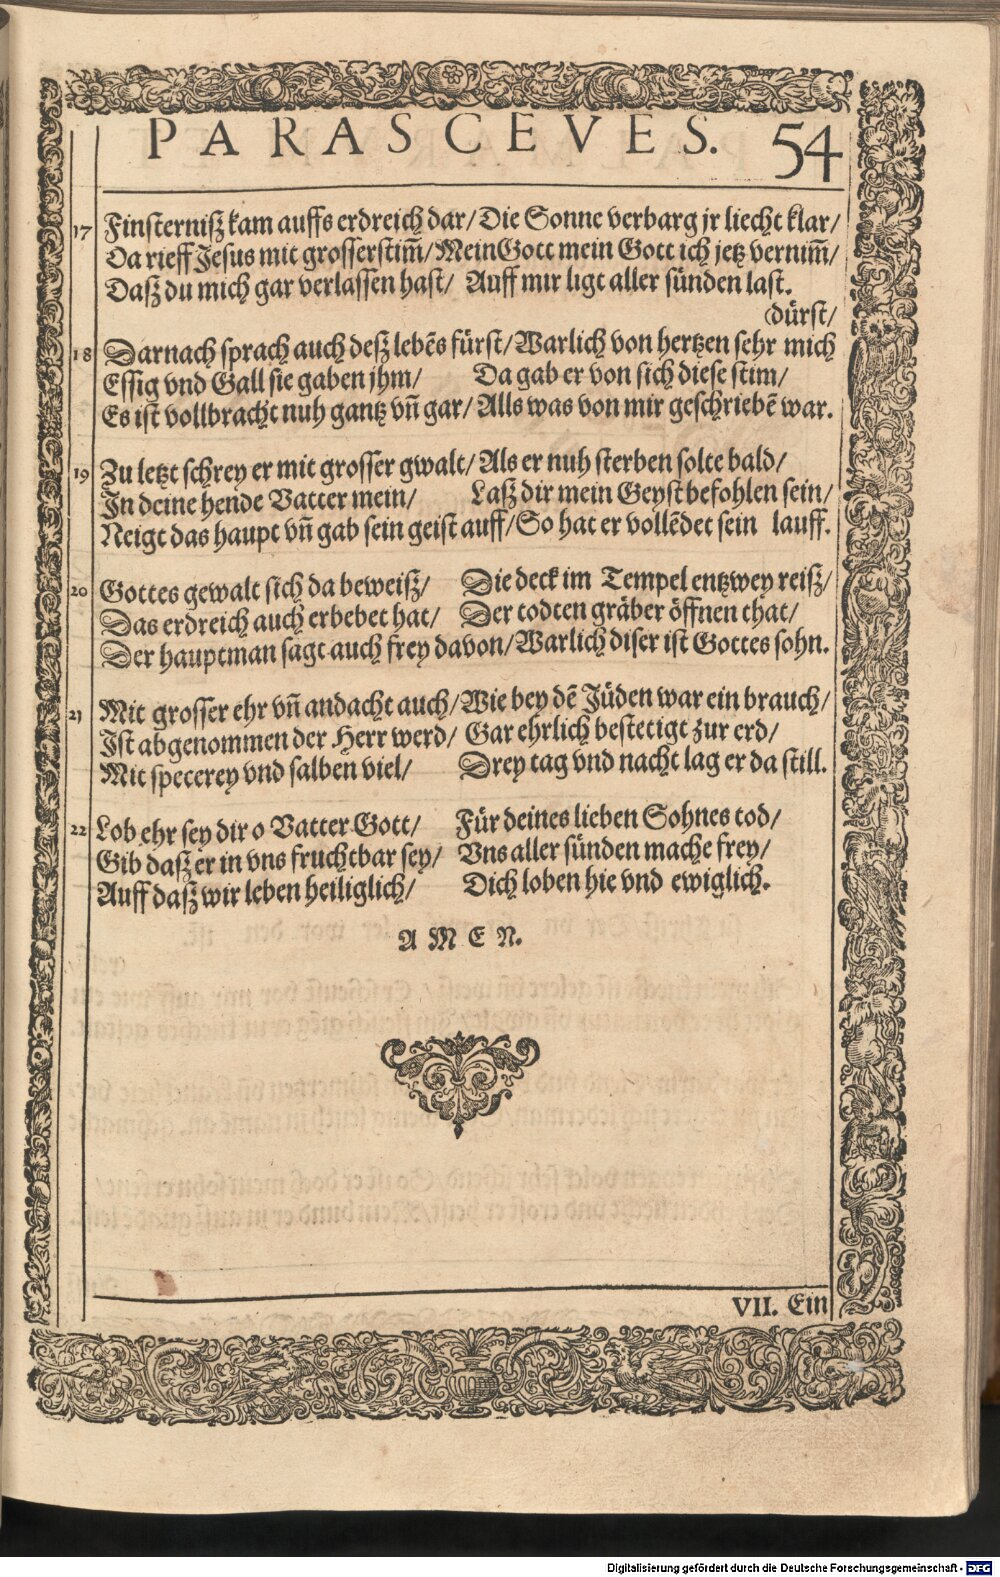 PARASCEVES. 54
17 Finsterniß kam auffs erdreich dar/ Die Sonne verbarg jr liecht klar/
Da rieff Jesus mit grosser stim̃/ Mein Gott mein Gott ich jetz vernim̃/
Daß du mich gar verlassen hast/ Auff mir ligt aller sünden last.
(dürst/
18 Darnach sprach auch deß lebẽs fürst/ Warlich von hertzen sehr mich
Essig vnd Gall sie gaben jhm/ Da gab er von sich diese stim/
Es ist vollbracht nuh gantz vñ gar/ Alls was von mir geschriebẽ war.
19 Zu letzt schrey er mit grosser gwalt/ Als er nuh sterben solte bald/
In deine hende Vatter mein/ Laß dir mein Geyst befohlen sein/
Neigt das haupt vñ gab sein geist auff/ So hat er vollẽdet sein lauff.
20 Gottes gewalt sich da beweiß/ Die deck im Tempel entzwey reiß/
Das erdreich auch erbebet hat/ Der todten gräber öffnen that/
Der hauptman sagt auch frey davon/ Warlich diser ist Gottes sohn.
21 Mit grosser ehr vñ andacht auch/ Wie bey dẽ Jüden war ein brauch/
Ist abgenommen der Herr werd/ Gar ehrlich bestetigt zur erd/
Mit specerey vnd salben viel/ Drey tag vnd nacht lag er da still.
22 Lob ehr sey dir o Vatter Gott/ Für deines lieben Sohnes tod/
Gib daß er in vns fruchtbar sey/ Vns aller sünden mache frey/
Auff daß wir leben heiliglich/ Dich loben hie vnd ewiglich.
AMEN.
VII. Ein
Digitalisierung gefördert durch die Deutsche Forschungsgemeinschaft - DFG